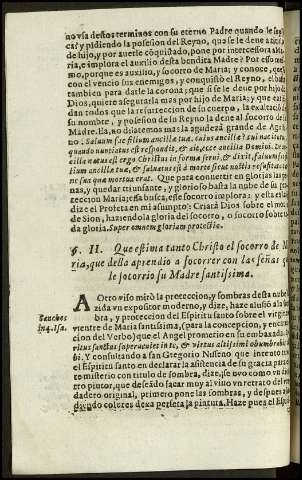 no vía destos terminos con su eterno Padre quando le su-
ca! y pidiendo la posesion del Reyno, que se le deue a titulo
de hijo, y por auerle cõquistado, pone por intercessora a Ma-
ria, e implora el auxilio desta bendita Madre? Por esso mis-
mo, porque es auxilio, y socorro de Maria; y conoce, que
con el vencio sus enemigos, y conquistò el Reyno, el ha de
tambien para darle la corona; que si se le deue por hijo de
Dios, quiere asegurarla mas por hijo de Maria; y que entien-
dan todos que la resurreccion de su cuerpo, la exaltacion de
su nombre, y posesion de su Reyno la deue al socorro de su
Madre. Ea, no dilatemos mas la agudeza grande de Agusti-
no: Saluum fac filium ancillæ tuæ. cuius ancillæ? cui natiuitas
quando nuntiatus est respondit, & ait, ecce ancilla Domini. Ex an-
cilla natus est ergo Christus in forma serui, & dixit, saluum fac fi-
lium ancillæ tuæ, & saluatus est à morte sicut nostis resuscitata car-
ne sua quæ mortua erat. Que para conuertir en glorias las pe-
nas, y quedar triunfante, y glorioso basta la nube de su pro-
teccion Maria; essa busca, esse socorro implora; y a ella
dize el Profeta en mi assumpto: Criarà Dios sobre el monte
de Sion, haziendola gloria del socorro, o socorro sobre to-
da gloria. Super omnem gloriam protectio.
§. II. Que estima tanto Christo el socorro de Ma-
ria, que della aprendio a socorrer con las señas que
le socorrio su Madre santissima.
A Otro viso mirò la proteccion, y sombras desta nube
Sanchez
in 4. Isa.
rizada vn expositor moderno, y dize, haze alusiõ a la som-
bra, y proteccion del Espiritu santo sobre el virgineo
vientre de Maria santissima, (para la concepcion, y encarna-
cion del Verbo) que el Angel promerio en su embaxada. Spi-
ritus sanctus superueniet in te, & virtus altissimi obumbrabit ti-
bi. Y consultando a san Gregorio Niseno que intento tuuo
el Espiritu santo en declarar la asistencia de su gracia para es-
te misterio con titulo de sombra, dize, se vuo como vn dies-
tro pintor, que deseãdo sacar muy al viuo vn retrato del ver-
dadero original, primero pone las sombras, y despues aña-
diendo colores dexa perfeta la pintura. Haze pues el Espi-